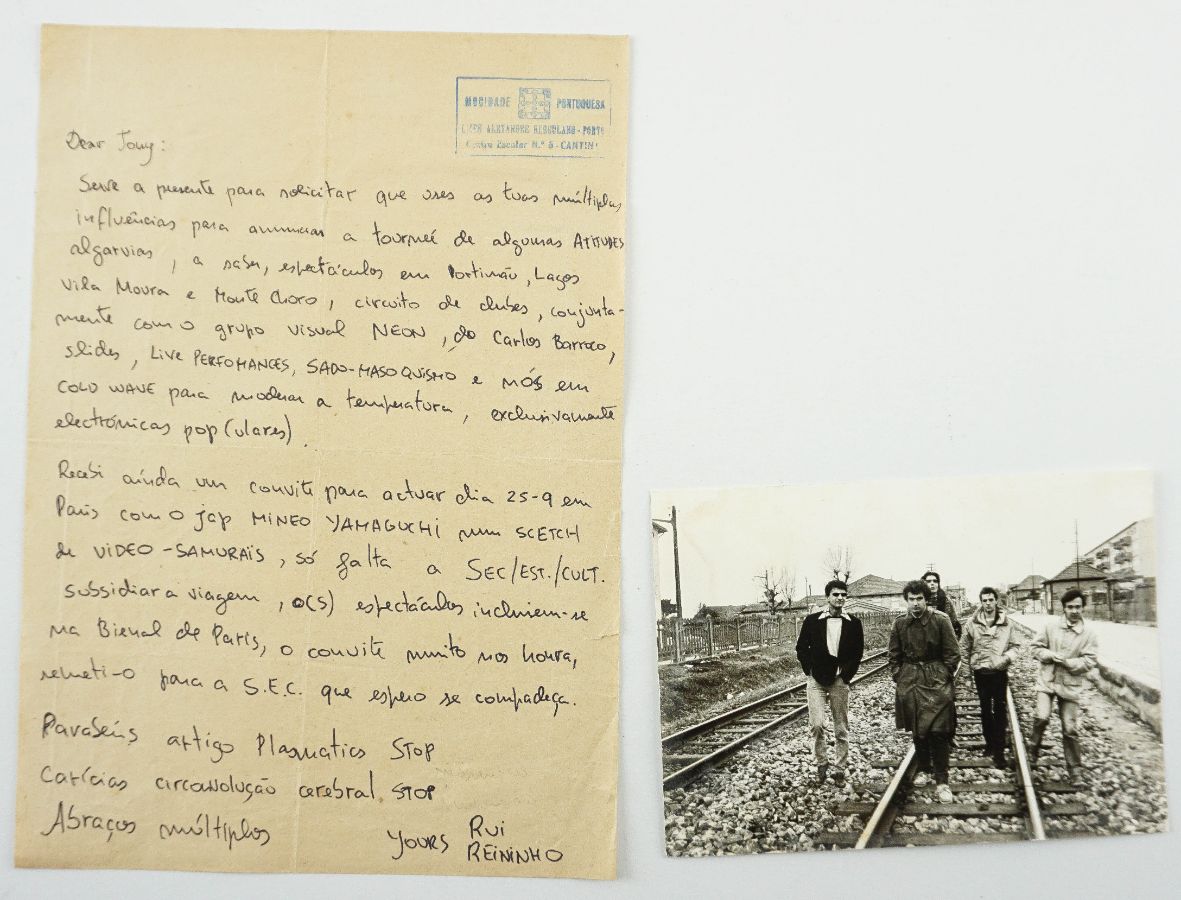 MOCIDADE PORTUGUESA
LICEU ALEXANDRE HERCULANO - PORTO
Centro Escolar N.º 5 - CANTINA
Dear Tony:
Serve a presente para solicitar que uses as tuas múltiplas
influências para anunciar a tourneé de algumas ATITUDES
algarvias, a saber, espectáculos em Portimão, Lagos
Vila Moura e Monte Choro, circuito de clubes, conjunta-
mente com o grupo visual NEON, do Carlos Barroco,
slides, LIVE PERFOMANCES, SADO-MASOQUISMO e NÓS em
COLD WAVE para moderar a temperatura, exclusivamente
electrónicas pop(ulares).
Recebi ainda um convite para actuar dia 25-9 em
Paris com o jap MINEO YAMAGUCHI num SCETCH
de VIDEO-SAMURAIS, só falta a SEC/EST./CULT.
subsidiar a viagem, o(s) espectáculos incluiem-se
na Bienal de Paris, o convite muito nos honra,
remeti-o para a S.E.C. que espero se compadeça.
Parabéns artigo Plasmatics STOP
Carícias circonvolução cerebral STOP
Abraços múltiplos
YOURS RUI
REININHO